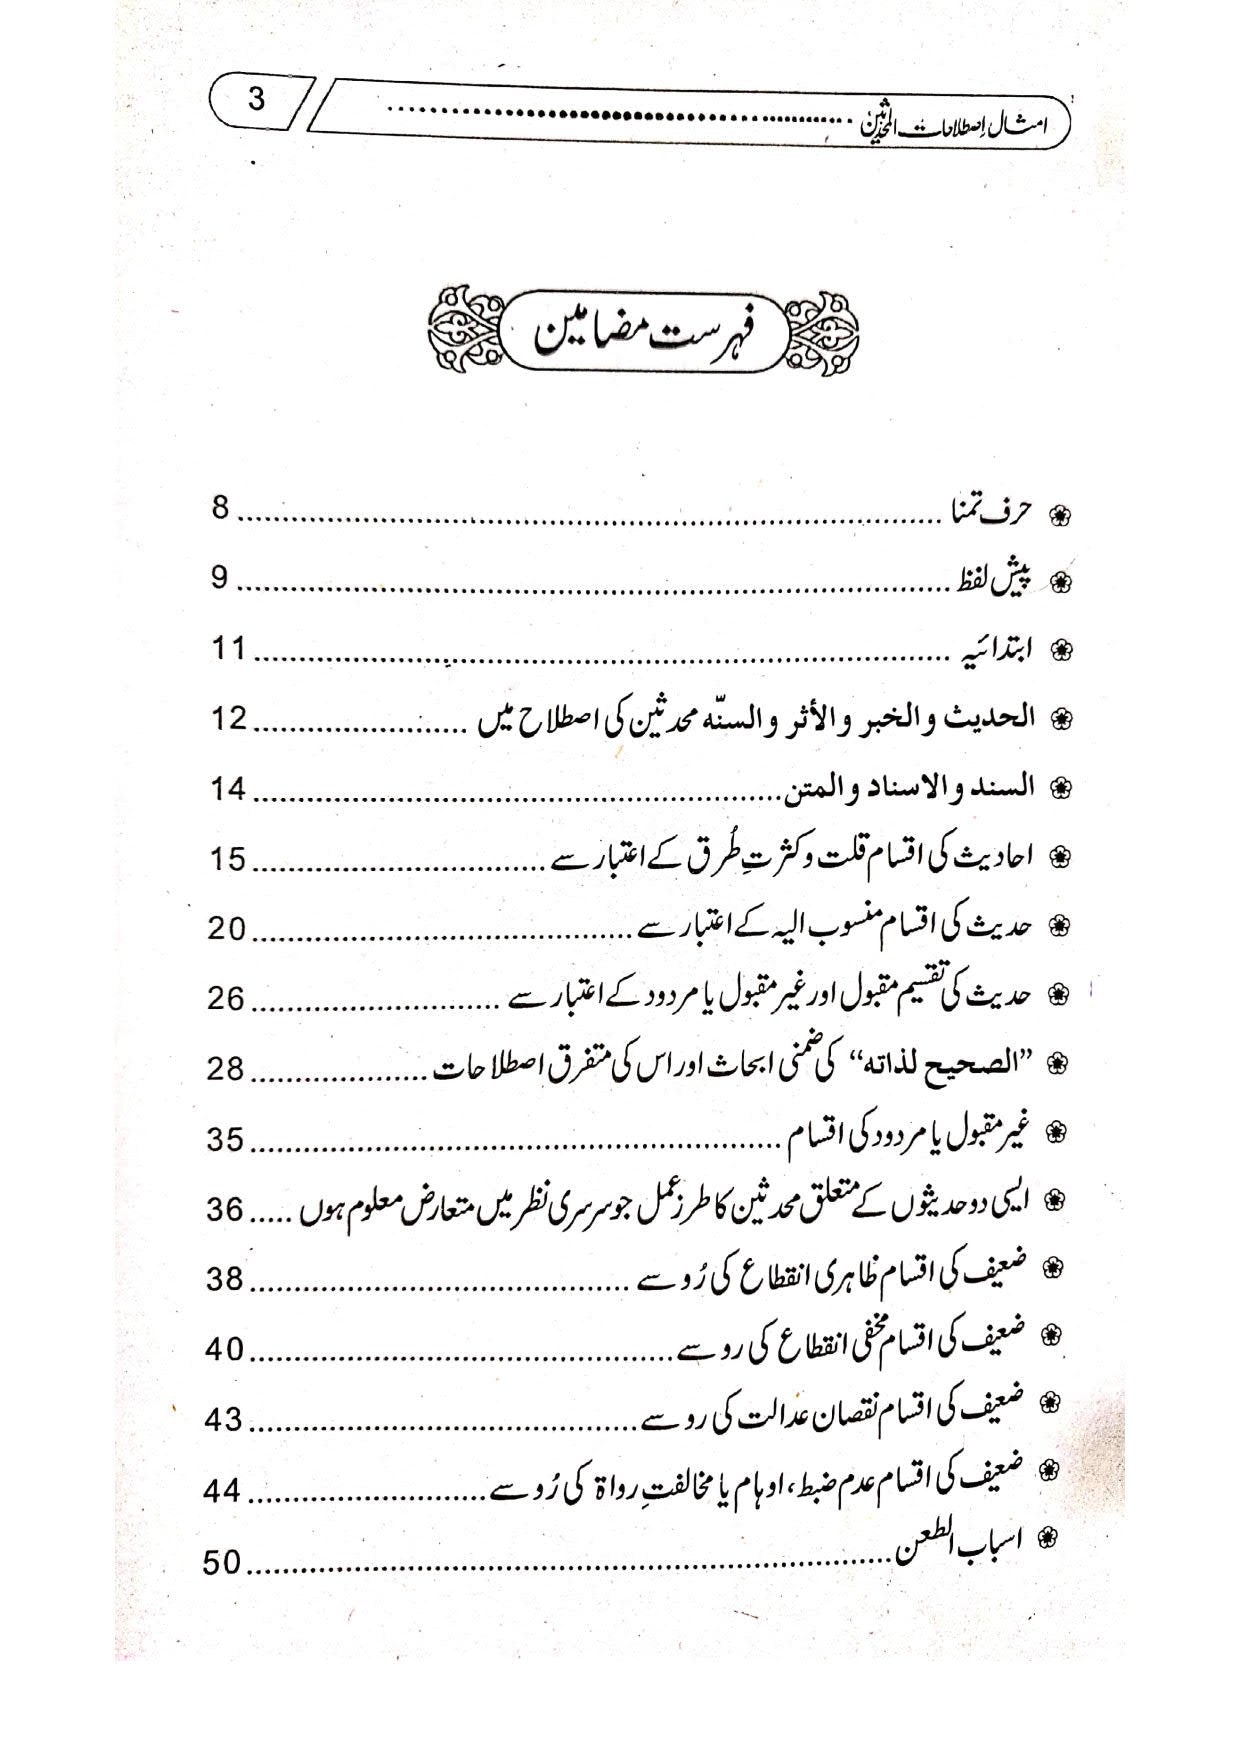 امثال اصطلاحات المحدثین ........................ 3
فہرست مضامین
حرف تمنا ........................ 8
پیش لفظ ........................ 9
ابتدائیہ ........................ 11
الحديث والخبر والأثر والسنّه محدثین کی اصطلاح میں ........................ 12
السند والاسناد والمتن ........................ 14
احادیث کی اقسام قلت و کثرتِ طُرق کے اعتبار سے ........................ 15
حدیث کی اقسام منسوب الیہ کے اعتبار سے ........................ 20
حدیث کی تقسیم مقبول اور غیر مقبول یا مردود کے اعتبار سے ........................ 26
”الصحیح لذاته“ کی ضمنی ابحاث اور اس کی متفرق اصطلاحات ........................ 28
غیر مقبول یا مردود کی اقسام ........................ 35
ایسی دو حدیثوں کے متعلق محدثین کا طرز عمل جو سرسری نظر میں متعارض معلوم ہوں ..... 36
ضعیف کی اقسام ظاہری انقطاع کی رُو سے ........................ 38
ضعیف کی اقسام مخفی انقطاع کی رو سے ........................ 40
ضعیف کی اقسام نقصان عدالت کی رو سے ........................ 43
ضعیف کی اقسام عدم ضبط، اوہام یا مخالفتِ رواۃ کی رُو سے ........................ 44
اسباب الطعن ........................ 50